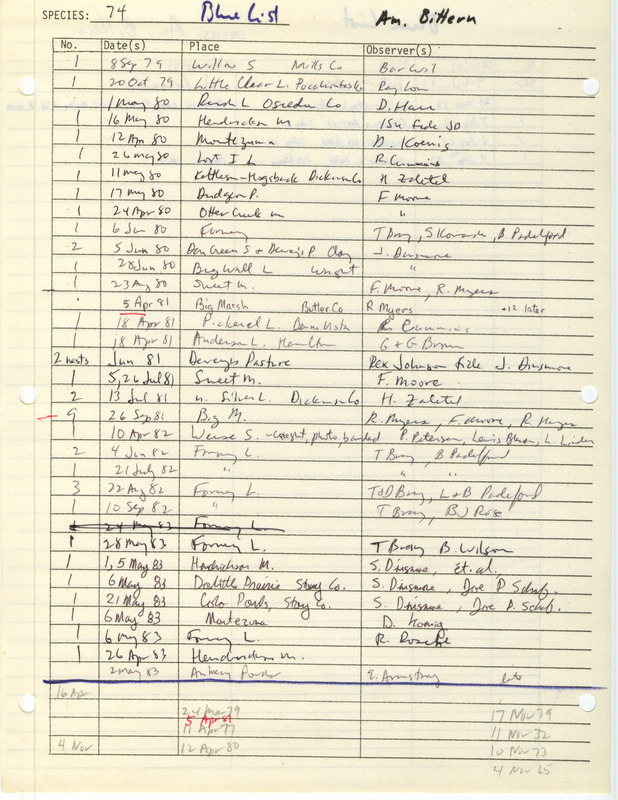 SPECIES: 74 Blue List Am. Bittern
No. Date(s) Place Observer(s)
1 8 Sep 79 Willow S Mills Co Barwil
1 20 Oct 79 Little Clear L. Pocahontas Co Ray
1 May 80 L Osceola Co D.
1 16 May 80 Hendrickson M
1 12 Apr 80 Montezuma D. Koenig
1 26 May 80 Lost I L R. Cummins
1 11 May 80 Kettleson-Hogsback Dickinson Co H Zaletel
1 17 May 80 Dudgeon P. F Moore
1 24 Apr 80 Otter Creek m "
1 6 Jun 80 Forney T Bray, S Kovanda, B Padelford
2 5 Jun 80 Dan Green S + Dewey's P. Clay J. Dinsmore
1 28 Jun 80 Big Wall L Wright "
1 23 Aug 80 Sweet M. F. Moore, R. Myers
5 Apr 81 Big Marsh Butler Co R Myers •12 later
1 18 Apr 81 Pickerel L. Buena Vista R. Cummins
1 18 Apr 81 Anderson L. Hamilton G + G Brown
2 nests Jun 81 Deweys Pasture Rex Johnson fide J. Dinsmore
1 5, 26 Jul 81 Sweet M. F. Moore
2 13 Jul 81 n. Silver L. Dickinson Co H. Zaletel
9 26 Sep 81 Big M. R. Myers, F. Moore, R. Myers
10 Apr 82 Weise S. - caught, photo, banded P. Petersen, Lewis Blevins, L. Linder
2 4 Jun 82 Forney L. T Bray, B Padelford
1 21 July 82 " " "
3 22 Aug 82 Forney L. T+D Bray, L+B Padelford
1 10 Sep 82 " T Bray, BJ Rose
1 24 May 83 Forney L
1 28 May 83 Forney L. T Bray B. Wilson
1 1, 5 May 83 Hendrickson M. S. Dinsmore, et. al.
1 6 May 83 Doolittle Prairie Story Co. S. Dinsmore, Joe P Schuf.
1 21 May 83 Colo Ponds, Story Co. S. Dinsmore, Joe P. Schuf.
1 6 May 83 Montezuma D. Koenig
1 6 May 83 Forney L. R. Rosche
1 26 Apr 83 Hendrickson M.
2 May 83 Ankeny Ponds E. Armstrong late
16 Apr
24 Mar 79 17 Nov 79
5 Apr 81
11 Apr 77 11 Nov 32
4 Nov 12 Apr 80 10 Nov 73
4 Nov 65